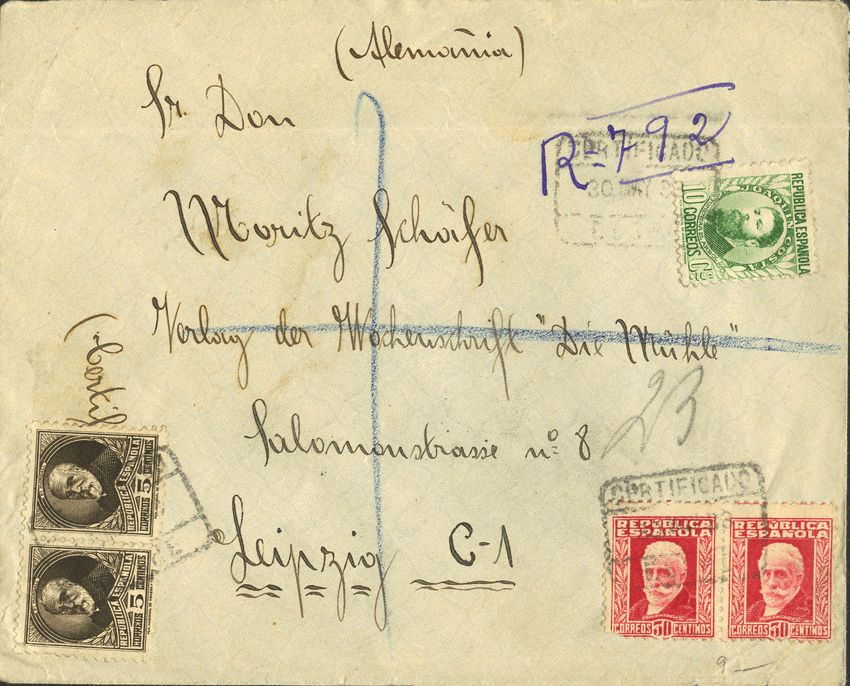 (Alemania)
Sr. Don
R-792
CERTIFICADO
30 MAY 3
10 CORREOS CTS
JOAQUIN COSTA
REPÚBLICA ESPAÑOLA
Moritz Schäfer
Verlag der Wochenschrift "Die Mühle"
(Certif
Salomonstrasse nº 8
23
Leipzig C-1
REPÚBLICA ESPAÑOLA
5 CENTIMOS
CORREOS
REPÚBLICA ESPAÑOLA
5 CENTIMOS
CORREOS
CERTIFICADO
REPÚBLICA
ESPAÑOLA
CORREOS 30 CENTIMOS
REPÚBLICA
ESPAÑOLA
CORREOS 30 CENTIMOS
9